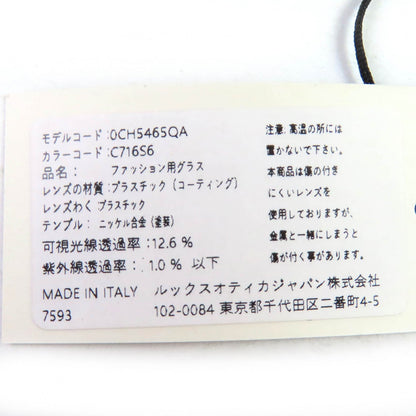 モデルコード：0CH5465QA
カラーコード：C716S6
品名：　　ファッション用グラス
レンズの材質：プラスチック（コーティング）
レンズわく：プラスチック
テンプル：ニッケル合金（塗装）
可視光線透過率：12.6 %
紫外線透過率：1.0 % 以下
MADE IN ITALY
7593
注意：高温の所には
置かないで下さい。
本商品は傷の付き
にくいレンズを
使用しておりますが、
金属と一緒にしまうと
傷が付く事があります。
ルックスオティカジャパン株式会社
102-0084 東京都千代田区二番町4-5